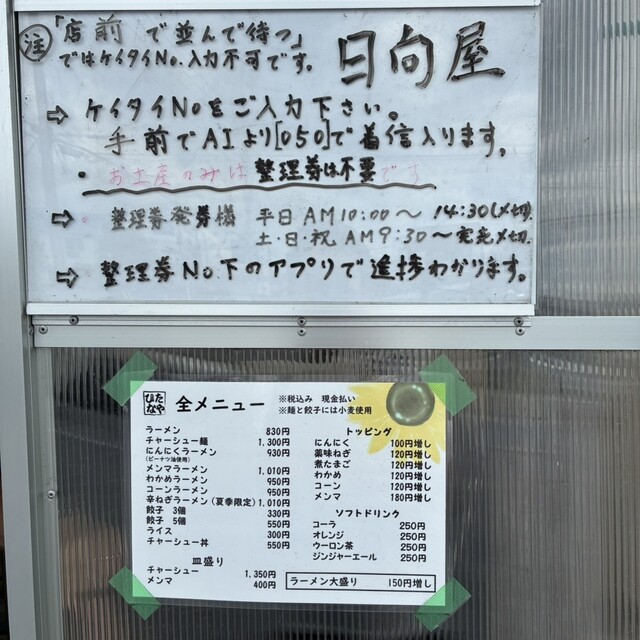 注 「店前で並んで待つ」
ではケイタイNo.入力不可です。
日向屋
⇨ ケイタイNoをご入力下さい。
手前でAIより[050]で着信入ります。
・お土産のみは整理券は不要です
⇨ 整理券発券機 平日AM10:00〜14:30(〆切)
土・日・祝AM9:30〜完売〆切.
⇨ 整理券No.下のアプリで進捗わかります。
ひなたや
全メニュー
※税込み 現金払い
※麺と餃子には小麦使用
ラーメン 830円
チャーシュー麺 1,300円
にんにくラーメン 930円
(ピーナツ油使用)
メンマラーメン 1,010円
わかめラーメン 950円
コーンラーメン 950円
辛ねぎラーメン(夏季限定) 1,010円
餃子 3個 330円
餃子 5個 550円
ライス 300円
チャーシュー丼 550円
皿盛り
チャーシュー 1,350円
メンマ 400円
トッピング
にんにく 100円増し
薬味ねぎ 120円増し
煮たまご 120円増し
わかめ 120円増し
コーン 120円増し
メンマ 180円増し
ソフトドリンク
コーラ 250円
オレンジ 250円
ウーロン茶 250円
ジンジャーエール 250円
ラーメン大盛り 150円増し